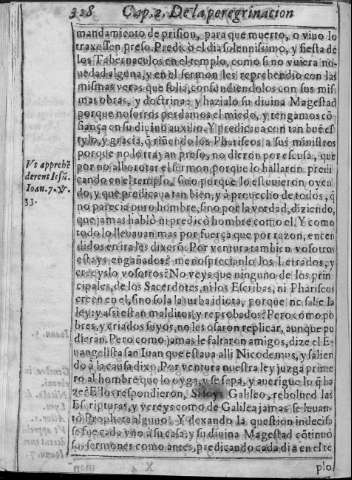 328 Cap. 2. De la peregrinacion
mandamiento de prision, para que muerto, o vivo lo
traxessen preso. Predicò el dia solennissimo, y fiesta de
los Tabernaculos en el templo, como si no vuiera no-
uedad alguna, y en el sermon les reprehendio con las
mismas veras que solia, confundiendolos con sus mis
mas obras, y doctrina: y hazialo su diuina Magestad
porque nosotros perdamos el miedo, y tengamos cõ
fiança en su diuino auxilio. Y predicaua con tan buẽ es
tylo, y gracia, q̃ riñendo los Phariseos a sus ministros
porque no lo traýan preso, no dieron por escusa, que
por no alborotar el sermon, porque lo hallaron predi
cando en el templo, sino porque lo estuuieron oyen-
do, y que predicaua tan bien, y a prouecho de todos, q̃
no parecia puro hombre, sino por la verdad, diziendo,
que jamas hablò ni predicò hombre como el. Y como
todo lo lleuauan mas por fuerça que por razon, enten
didos entre les dixerõ: Por ventura tambien vosotros
estays engañados? menospreciando los Letrados, y
creeyslo vosotros? No veys que ninguno de los prin
cipales, de los Sacerdotes, ni los Escribas, ni Phariseos
creen en el, sino sola la turba idiota, porque no sabe la
ley: y assi estan malditos, y reprobados? Pero como po
bres, y criados suyos, no les osaron replicar, aunque pu
dieran. Pero como jamas le faltaron amigos, dize el E-
uangelista san Iuan que estaua alli Nicodemus, y salien
do a la causa dixo. Por ventura nuestra ley juzga prime
ro al hombre que lo oyga, y se sepa, y auerigue lo q̃ ha
ze? E los respondieron, Galileo, rebolued las
Escripturas, y vereys como de Galilea jamas se leuan-
tò Propheta alguno? Y dexando la question indecisa
se fue cada vno a su casa: y su diuina Magestad cõtinuò
sus sermones como antes, predicando cada dia en el tẽ
plo
Vt apprehẽ
derent Iesũ.
Ioan. 7. v.
33.